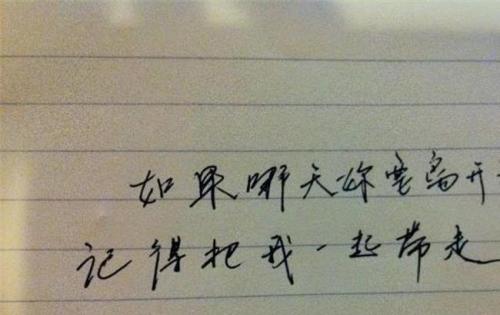 如果哪天妳要离开
记得把我一起带走